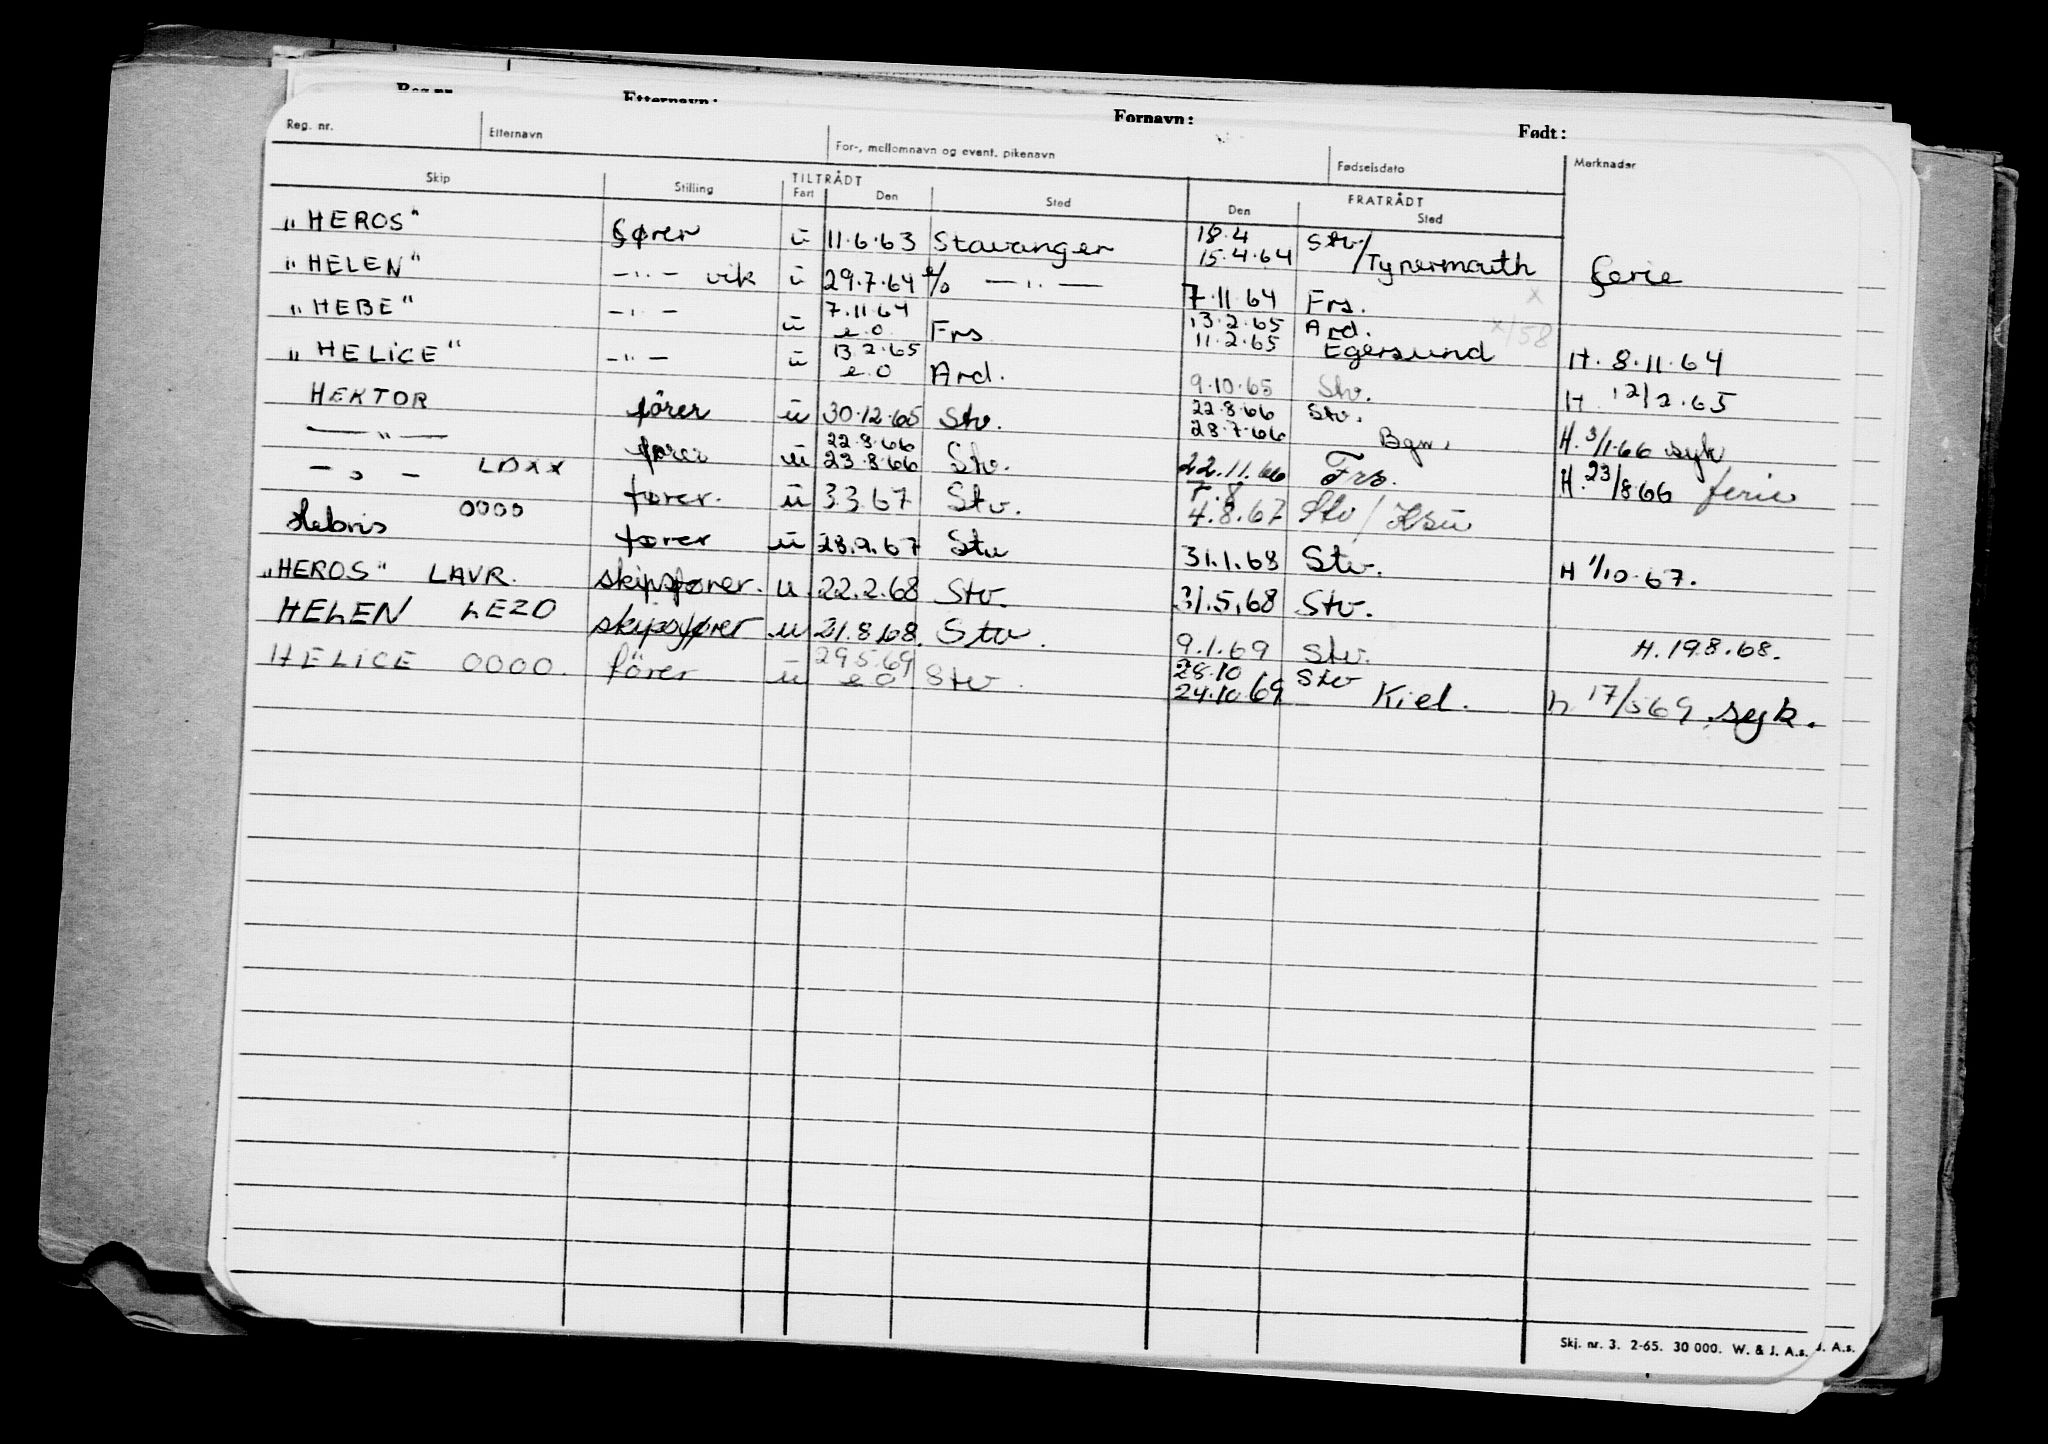 Etternavn: Fornavn: Født:
Reg. nr. Etternavn For-, mellomnavn og event. pikenavn Fødselsdato Merknader
Skip Stilling TILTRÅDT Fart Den Sted FRATRÅDT Den Sted
"HEROS" fører u 11.6.63 Stavanger 18.4 15.4.64 Stv/Tynemouth ferie
"HELEN" —"— vik u 29.7.64 e/o —"— 7.11.64 Frs.
"HEBE" —"— u 7.11.64 e.o Frs 13.2.65 11.2.65 Ard. Egersund H. 8.11.64
"HELICE" —"— u 13.2.65 e.o Ard. 9.10.65 Stv. H 12/2.65
HEKTOR fører u 30.12.65 Stv. 22.8.66 28.7.66 Stv. Bgn. H. 3/1.66 syk
—"— fører u 22.8.66 23.8.66 Stv. 22.11.66 Frs. H. 23/8.66 ferie
—"— LDXX fører. u 3.3.67 Stv. 7.8 4.8.67 Stv / Ksu
Hebris OOOO fører u 28.9.67 Stv 31.1.68 Stv. H 1/10.67.
"HEROS" LAVR. skipsfører. u 22.2.68 Stv. 31.5.68 Stv.
HELEN LEZO skipsfører u 21.8.68. Stv. 9.1.69 Stv. H. 19.8.68.
HELICE OOOO. fører u 29.5.69 e.o Stv. 28.10 24.10.69 Stv Kiel. h 17/5 69 syk.
Skj. nr. 3. 2-65. 30 000. W. & J. A.s. J. A.s.